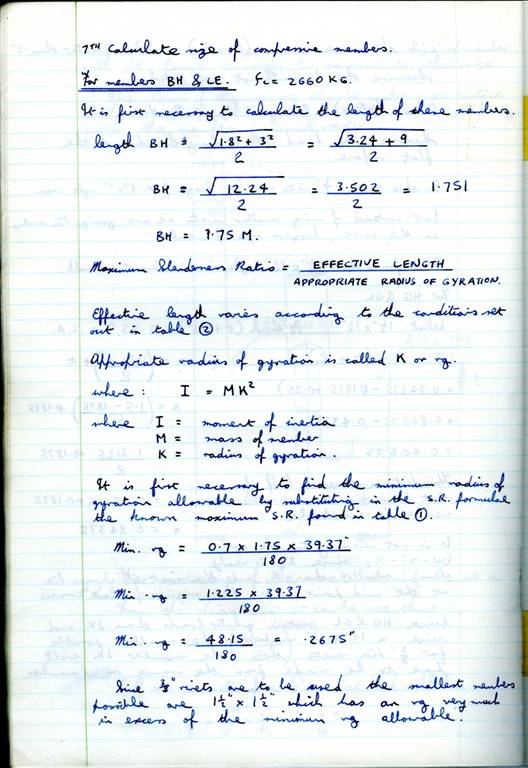 7TH Calculate size of compressive members.
For members BH & LE. Fc = 2660 KG.
It is first necessary to calculate the length of these members.
length BH = √1.8² + 3² / 2 = √3.24 + 9 / 2
BH = √12.24 / 2 = 3.502 / 2 = 1.751
BH = 1.75 M.
Maximum Slenderness Ratio = EFFECTIVE LENGTH / APPROPRIATE RADIUS OF GYRATION.
Effective length varies according to the conditions set
out in table ②
Appropriate radius of gyration is called K or rg.
where : I = MK²
where I = moment of inertia
M = mass of member
K = radius of gyration.
It is first necessary to find the minimum radius of
gyration allowable by substituting in the S.R. formulae
the known maximum S.R. found in table ①.
Min. rg = 0.7 x 1.75 x 39.37" / 180
Min. rg = 1.225 x 39.37 / 180
Min. rg = 48.15 / 180 = .2675"
Since rivets are to be used the smallest members
possible are 1½" x 1½" which has an rg very much
in excess of the minimum rg allowable.